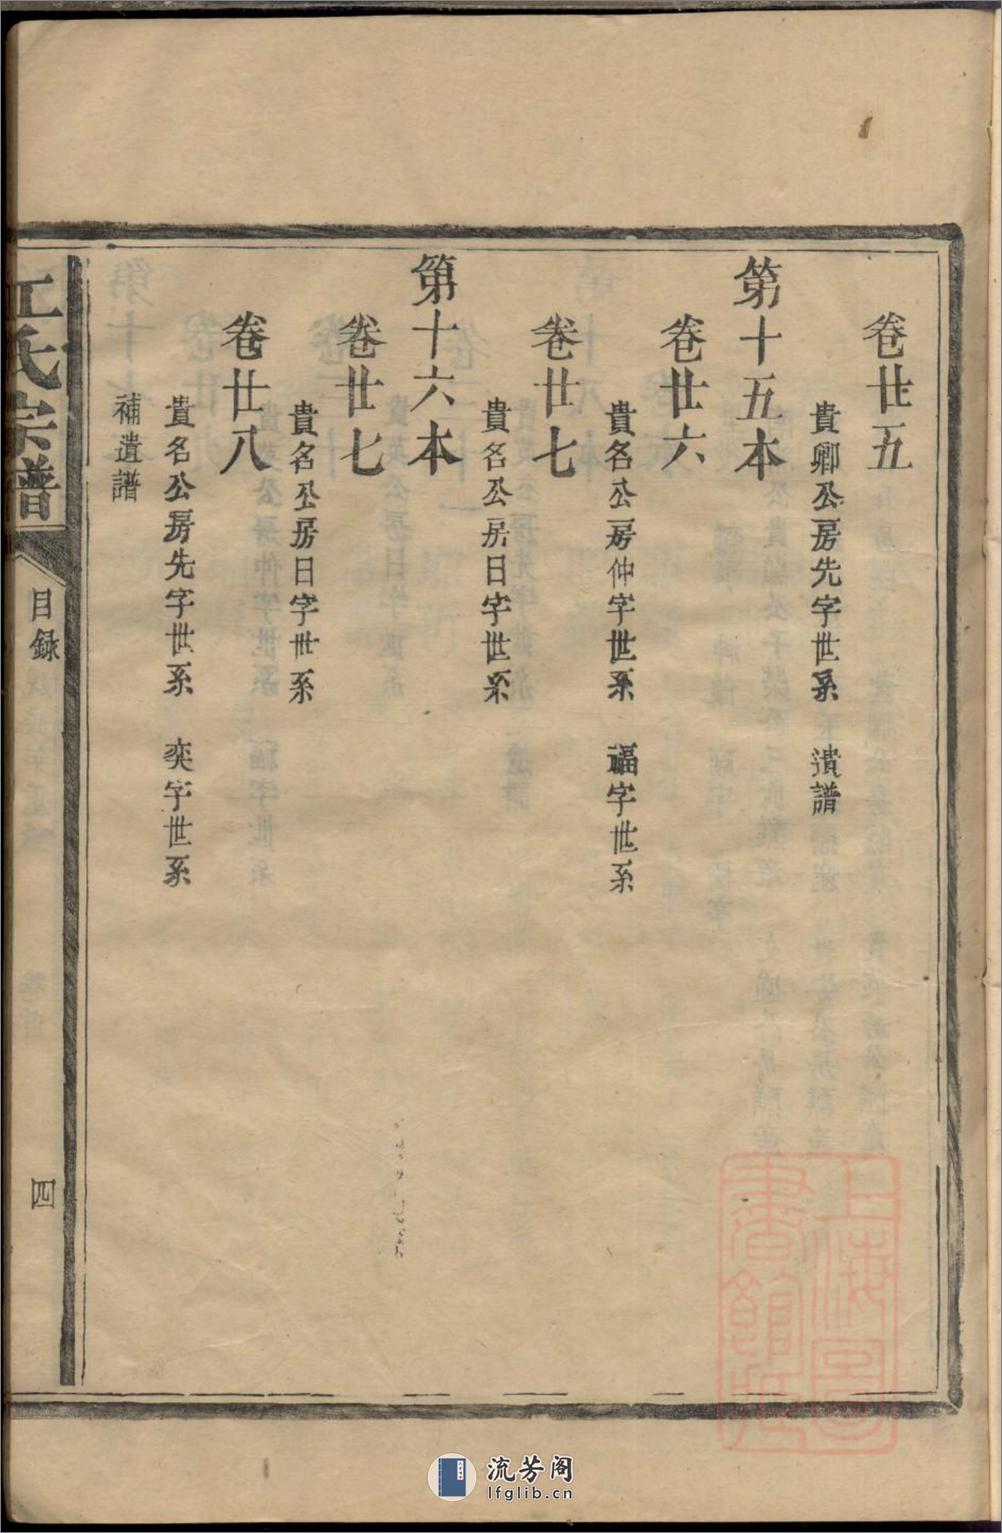 卷廿五
貴卿公房先字世系　遺譜
第十五本
卷廿六
貴名公房仲字世系　福字世系
卷廿七
貴名公房日字世系
第十六本
卷廿七
貴名公房日字世系
卷廿八
貴名公房先字世系　奕字世系
補遺譜
江氏宗譜
目録
四
上海圖書館藏
流芳阁
lfglib.cn